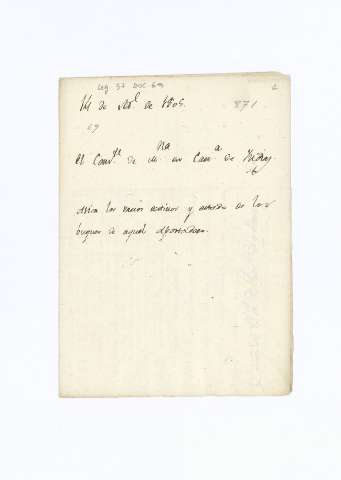 Leg 37 Doc 69
2
14 de Abl de 1805. 871
69
El Comte de Mna en Cana de
Avisa los varios destinos y entrada de los
buques de aquel Apostadero.